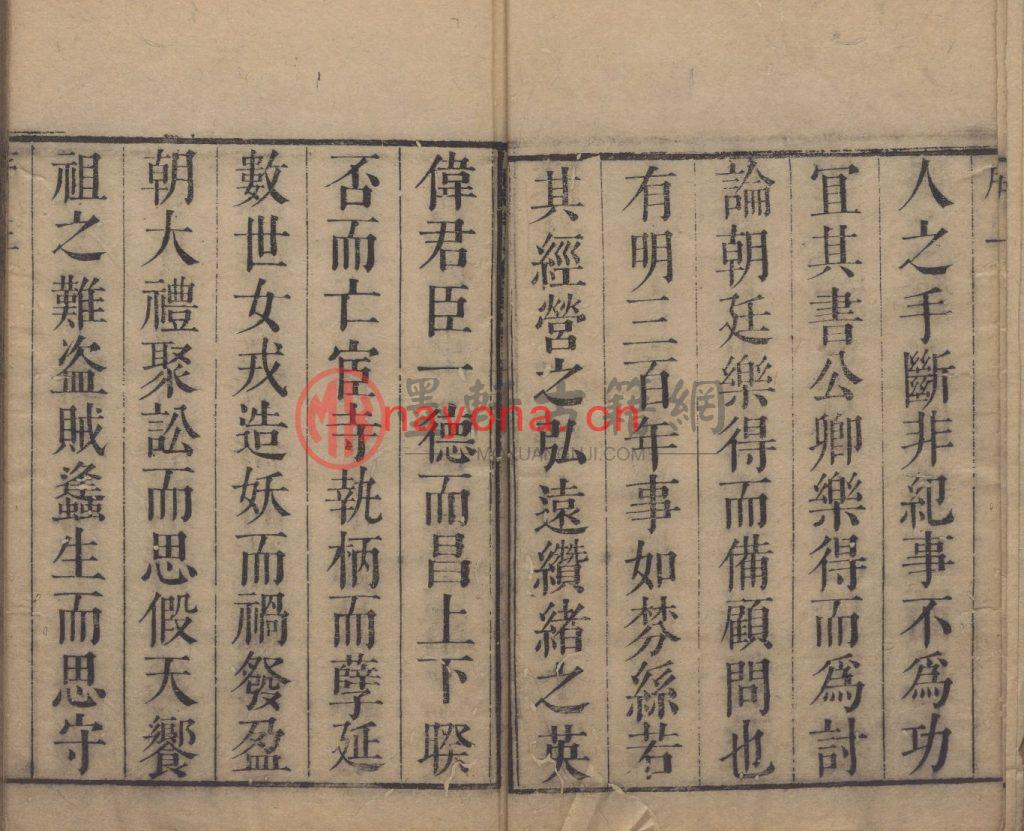 序 一
人之手斷非紀事不為功
宜其書公卿樂得而為討
論朝廷樂得而備顧問也
有明三百年事如棼絲若
其經營之弘遠纘緒之英
偉君臣一德而昌上下暌
否而亡宦寺執柄而孽延
數世女戎造妖而禍發盈
朝大禮聚訟而思假天饗
祖之難盜賊蠭生而思守
墨軒古籍網
nayona.cn
MOXUANGUJI.COM